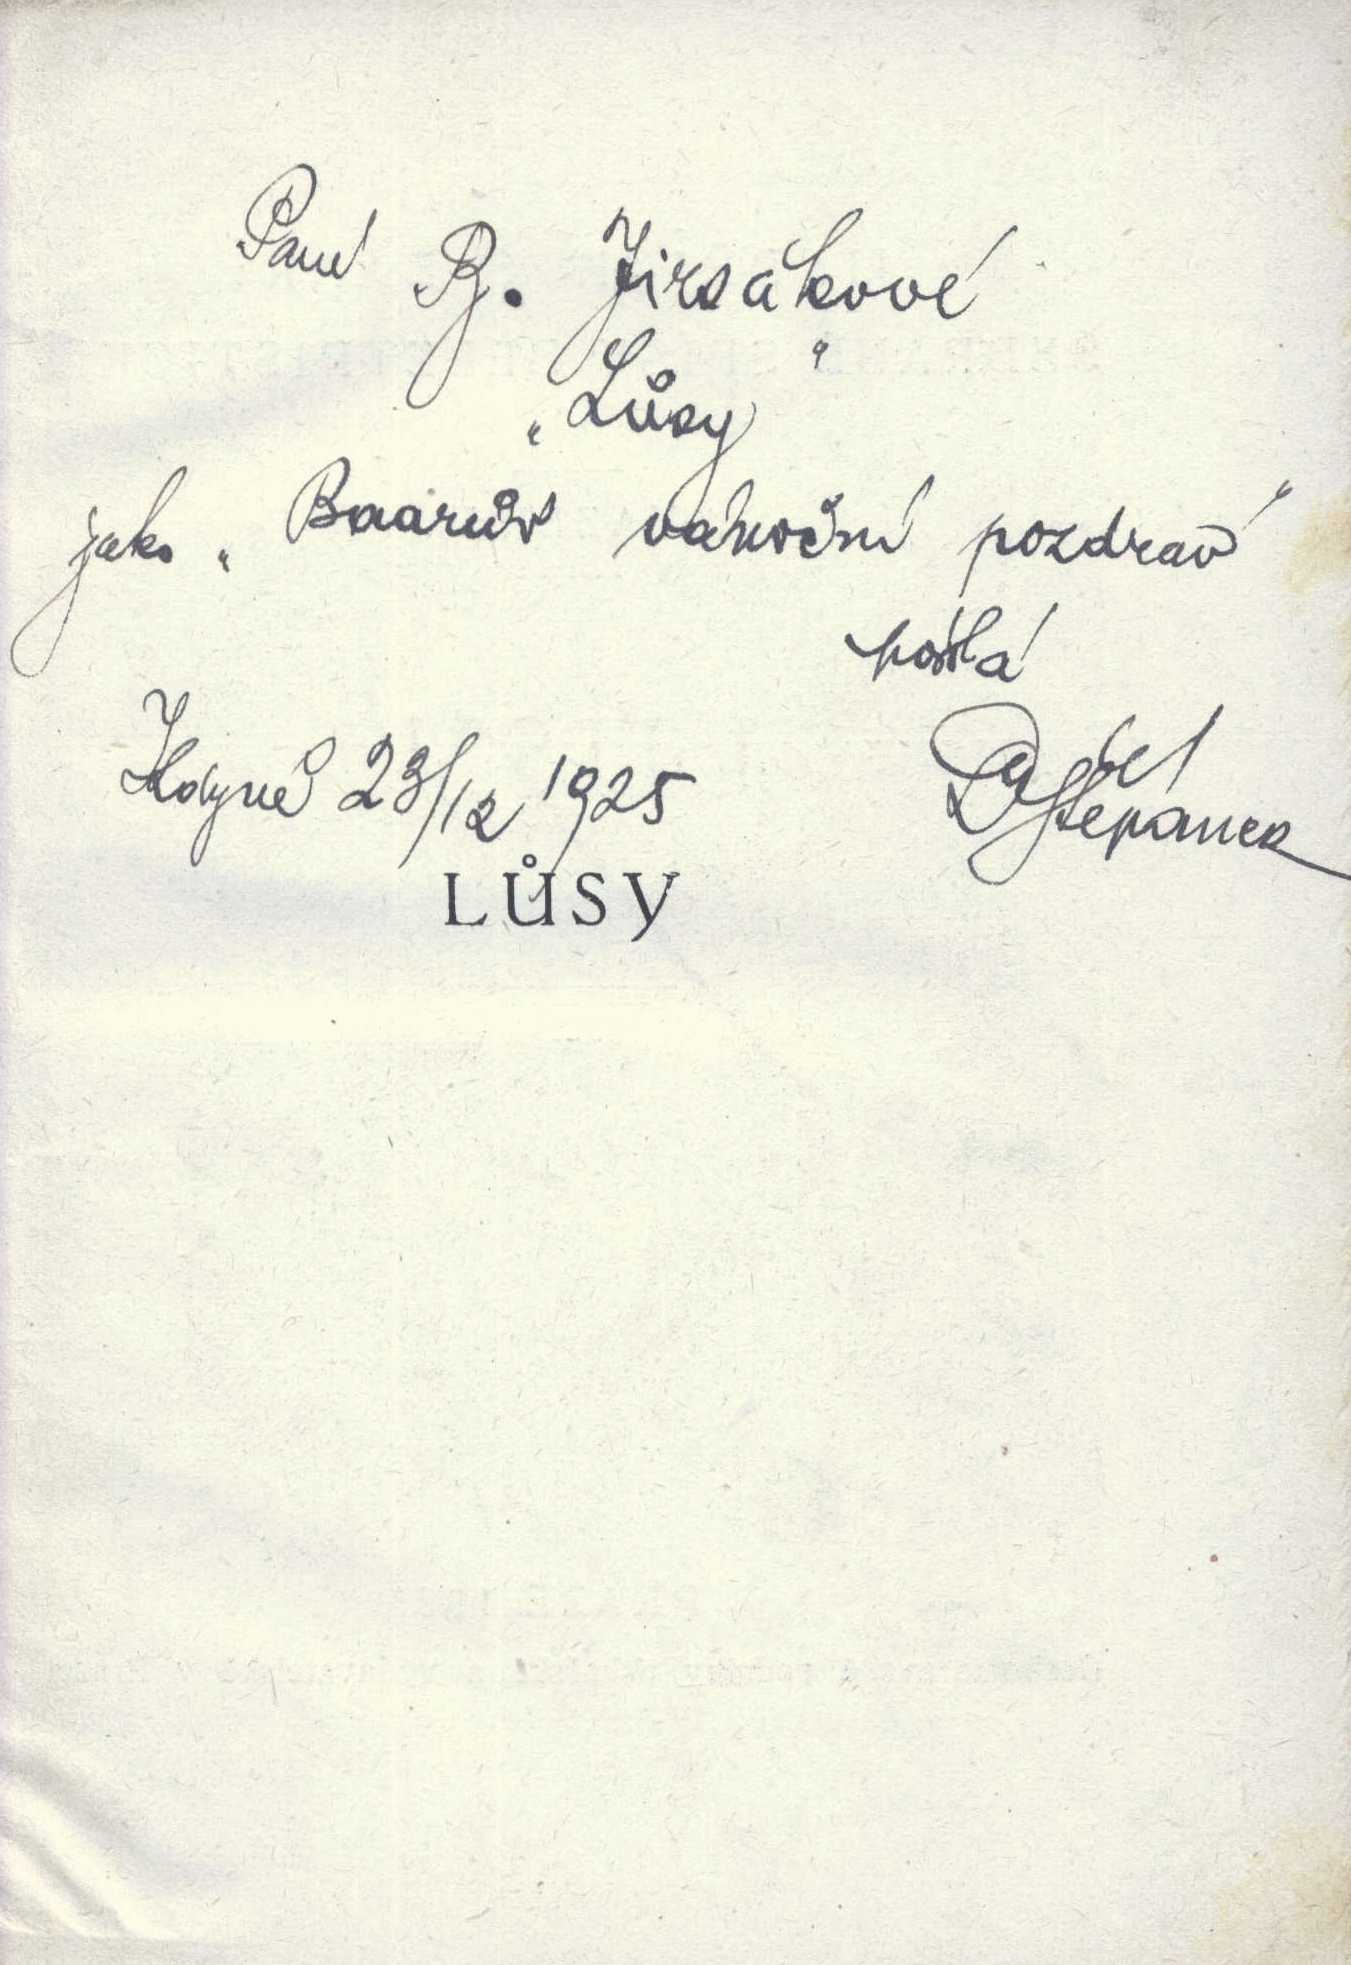 Paní B. Jirsákové
„Lůsy"
jako „Baarův vánoční pozdrav"
posílá
Kdyně 23/12 1925
Štěpánek
LŮSY